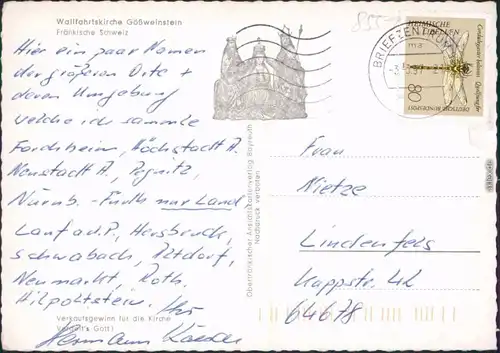 Wallfahrtskirche Gößweinstein
Fränkische Schweiz
Hier ein paar Namen
der größeren Orte +
deren Umgebung
welche ich sammle
Forchheim, Höchstadt A.
Neustadt A, Pegnitz,
Nürnb.-Fürth nur Land
Lauf a.d.P, Hersbruck,
Schwabach, Altdorf,
Neumarkt, Roth.
Hilpoltstein. Ihr
Verkaufsgewinn für die Kirche
Vergelt's Gott!
Hermann
Oberfränkischer Ansichtskartenverlag Bayreuth
Nachdruck verboten
BRIEFZENTRUM
HEIMISCHE
LIBELLEN
80
DEUTSCHE BUNDESPOST
Frau
Nietze
Lindenfels
Kappstr. 42
64678